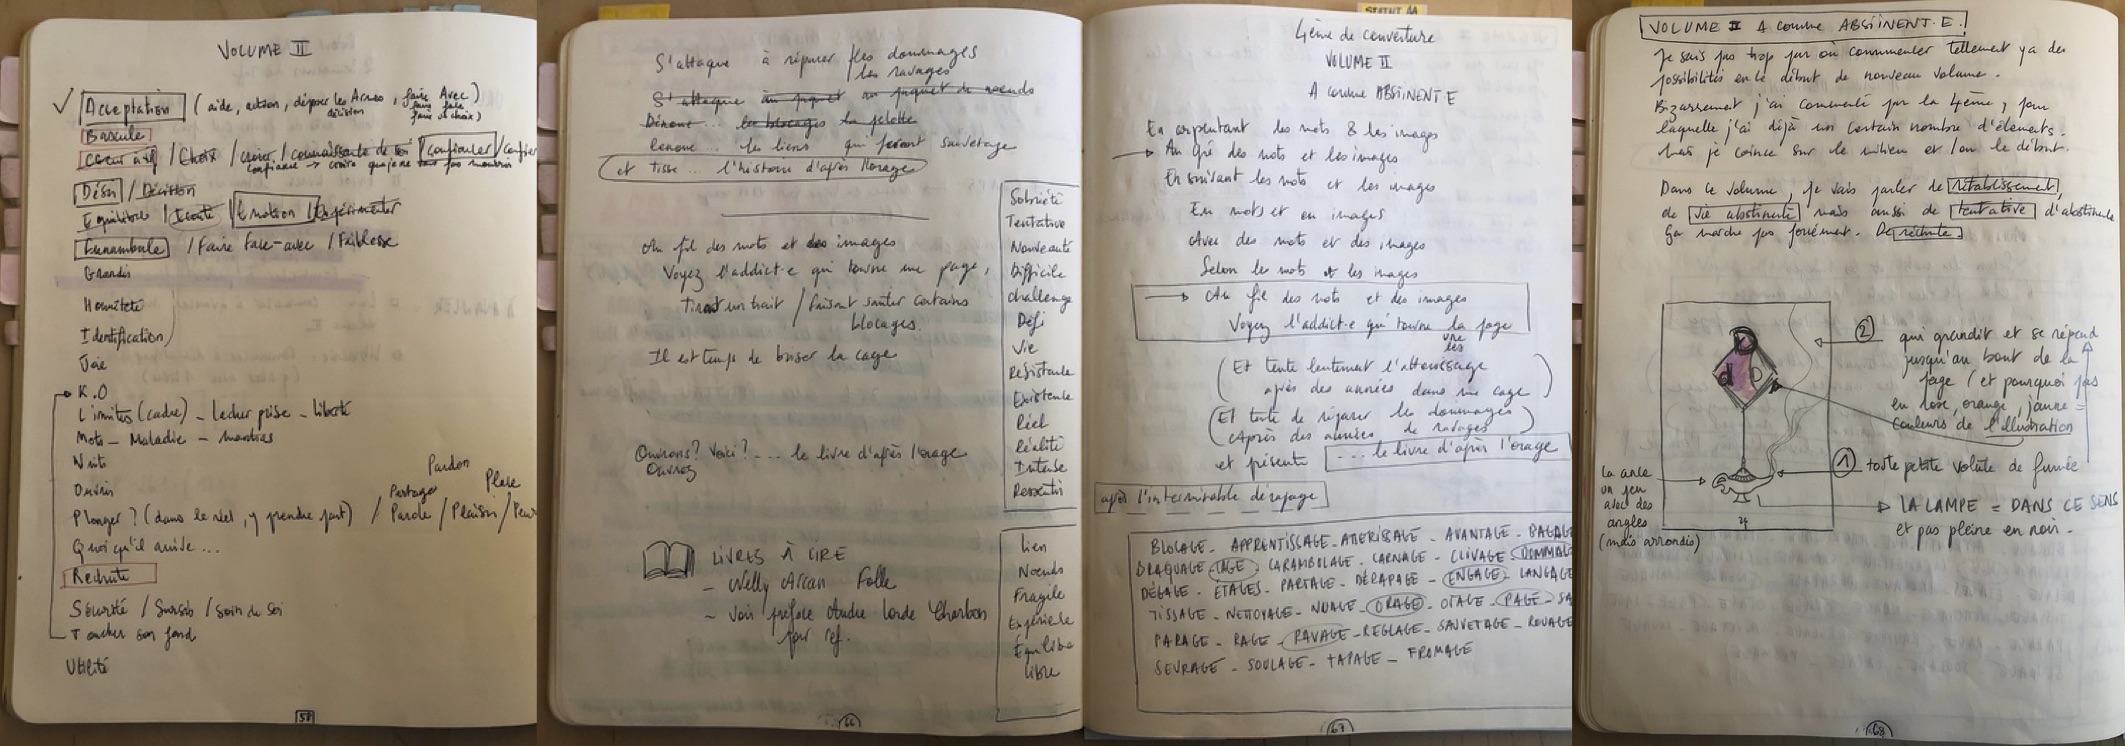 VOLUME II
Acceptation (aide, action, déposer les Armes, faire Avec)
décision
Bascule
Choix
confronter
Désir / Décision
Equilibre / Ecoute / Emotion / Expérimenter
Funambule / Faire face-avec / Faiblesse
Grandir
Honnêteté
Identification
Joie
K.O
Limites (cadre) - Lâcher prise - liberté
Mots - Maladie - mantras
Nuits
Ouvrir
Pardon
Partage Place
Plonger ? (dans le réel, y prendre part) / Parole / Plaisir / Peur
Quoi qu'il arrive ...
Rechute
Sécurité / Sursis / Soin de Soi
Toucher son fond
Utilité
58
S'attaque à réparer les dommages
les ravages
S'attaque au paquet au paquet de noeuds
Dénoue ... les blocages la pelote
Renoue ... les liens qui feront sauvetage
et tisse ... l'histoire d'après l'orage
Au fil des mots et des images
Voyez l'addict·e qui tourne une page,
Tirant un trait / faisant sauter certains
blocages.
Il est temps de briser la cage
Ouvrons? Voici? .... le livre d'après l'orage
Ouvrez
LIVRES À LIRE
- Nelly Arcan Folle
- Voir préface Audre Lorde Charbon
pour ref.
Sobriété
Tentative
Nouveauté
Difficile
challenge
Défi
Vie
Résistante
Existence
Réel
Réalité
Intense
Ressentir
Lien
Noeuds
Fragile
Équilibre
libre
66
STATUT AA
4ème de couverture
VOLUME II
A comme ABSTINENT·E
En arpentant des mots & les images
→ Au gré des mots et les images
En suivant les mots et les images
En mots et en images
Avec des mots et des images
Selon les mots et les images
→ Au fil des mots et des images
Voyez l'addict·e qui tourne la page
une
les
(Et tente lentement l'atterrissage
après des années dans une cage)
(Et tente de réparer les dommages
Après des années de ravages)
et présente ... le livre d'après l'orage
après l'interminable dérapage
BLOCAGE - APPRENTISSAGE - ATTERISSAGE - AVANTAGE - BAGAG
BRAQUAGE CAGE CARAMBOLAGE - CARNAGE - CLIVAGE DOMMAG
DÉGAGE - ÉTALES - PARTAGE - DÉRAPAGE - ENGAGE LANGAGE
TISSAGE - NETTOYAGE - NUAGE - ORAGE - OTAGE - PAGE - SA
PARAGE - RAGE - RAVAGE - REGLAGE - SAUVETAGE - ROUAGE
SEVRAGE - SOULAGE - TAPAGE - FROMAGE
67
VOLUME II A comme ABSTINENT·E !
Je sais pas trop par où commencer tellement ya des
possibilités en ce début de nouveau volume.
Bizarrement j'ai commencé par la 4ème, pour
laquelle j'ai déjà un certain nombre d'éléments.
Mais je coince sur le milieu et/ou le début.
Dans ce volume, je vais parler de rétablissement,
de vie abstinente mais aussi de tentative d'abstinence
Ça marche pas forcément. De rechute.
② qui grandit et se répand
jusqu'au bout de la
page (et pourquoi pas
en rose, orange, jaune =
couleurs de l'illustration
① toute petite volute de fumée
→ LA LAMPE = DANS CE SENS
et pas pleine en noir.
un peu
avec des
angles
(mais arrondis)
68